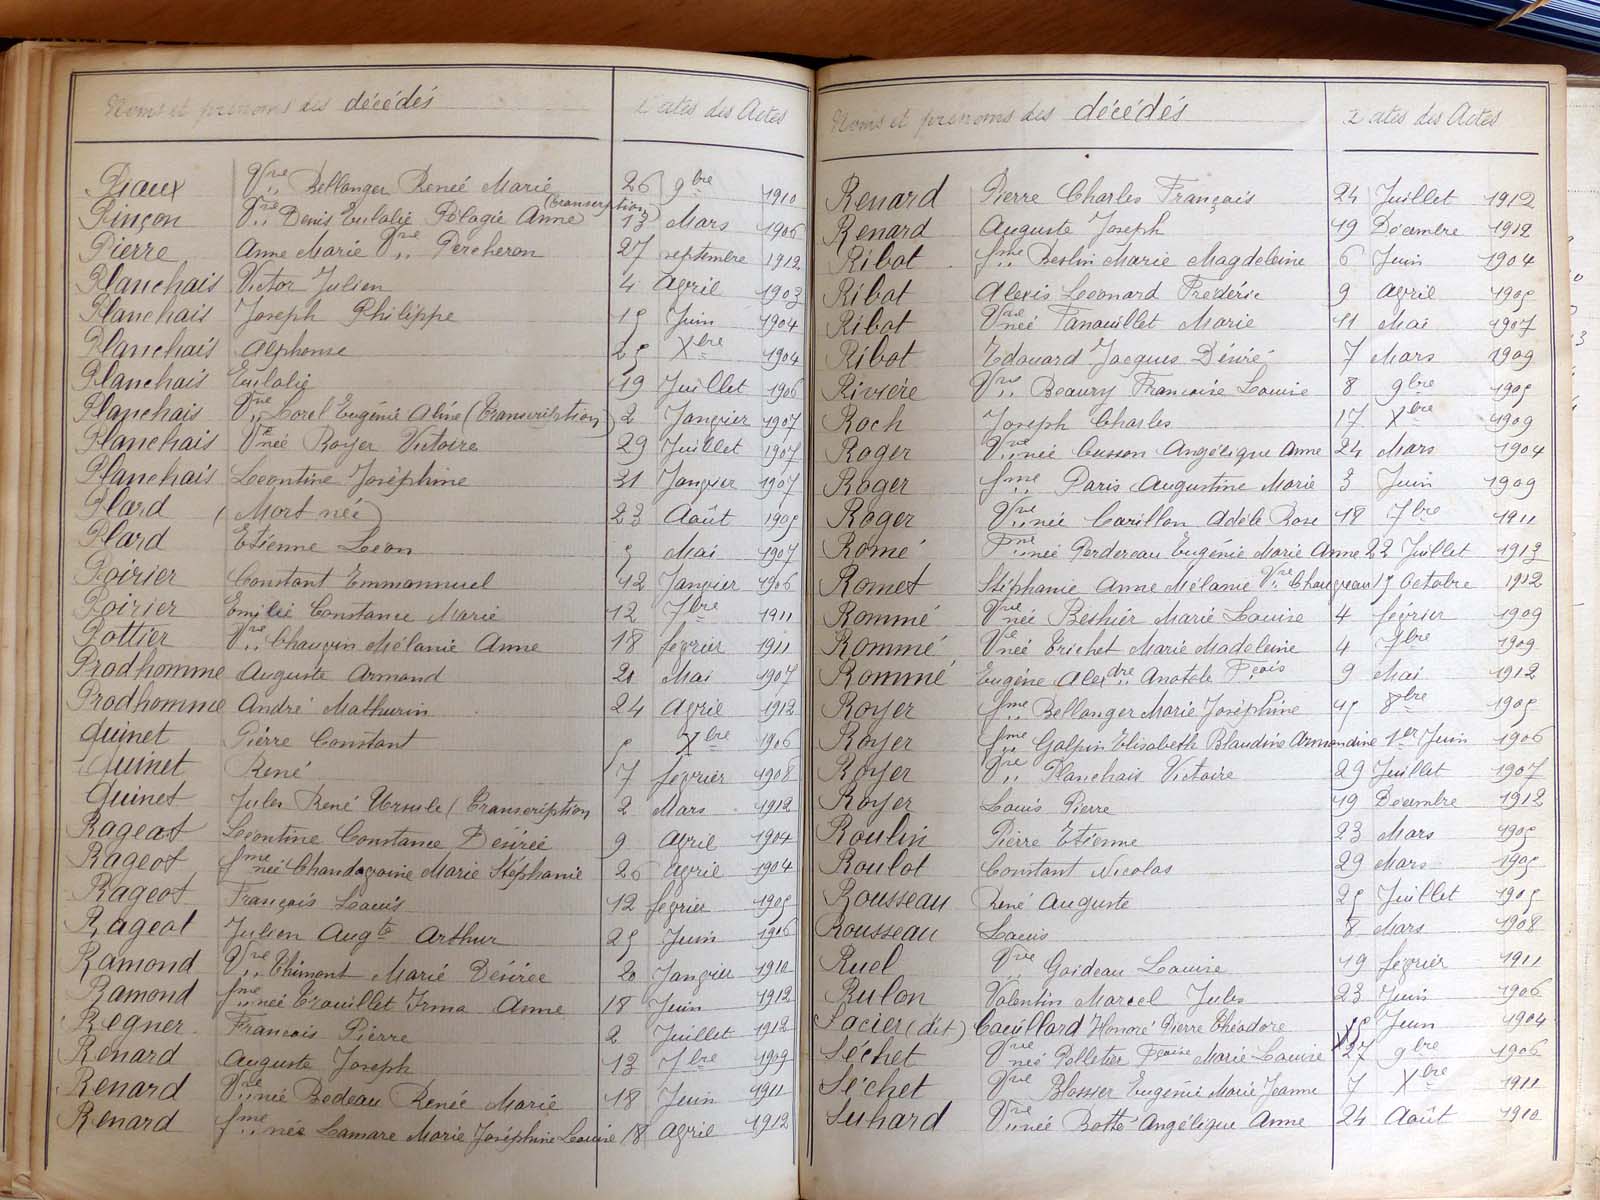 Noms et prénoms des décédés Dates des Actes
Piaux Vve Bellanger Renée Marie 26 9bre 1910
Pinçon Vve Denis Eulalie Pélagie Anne (transcription) 13 Mars 1906
Pierre Anne Marie Vve Percheron 27 septembre 1912
Planchais Victor Julien 4 Avril 1903
Planchais Joseph Philippe 15 Juin 1904
Planchais Alphonse 25 Xbre 1904
Planchais Eulalie 19 Juillet 1906
Planchais Vve Lorel Eugénie Aliné (Transcription) 2 Janvier 1907
Planchais Ve née Royer Victoire 29 Juillet 1907
Planchais Léontine Joséphine 31 Janvier 1907
Plard (Mort née) 23 Août 1905
Plard Etienne Léon 5 Mai 1907
Poirier Constant Emmannuel 12 Janvier 1906
Poirier Emilie Constance Marie 12 7bre 1911
Pottier Vve Chauvin Mélanie Anne 18 février 1911
Prodhomme Auguste Armand Mai 1907
Prodhomme André Mathurin 24 Avril 1912
Quinet Pierre Constant 5 Xbre 1906
Quinet René 7 février 1908
Quinet Jules René Ursule (Transcription 2 Mars 1912
Rageot Léontine Constance Désirée 9 Avril 1904
Rageot fme née Chandavoine Marie Stéphanie 26 Avril 1904
Rageot François Louis 12 février 1905
Rageot Julien Augte Arthur 25 Juin 1906
Ramond Vve Chimont Marie Désirée 20 Janvier 1910
Ramond fme née Trouillet Irma Anne 18 Juin 1912
Regner François Pierre 2 Juillet 1912
Renard Auguste Joseph 13 7bre 1909
Renard Vve née Bodeau Renée Marie 18 Juin 1911
Renard fme née Lamare Marie Joséphine Louise 18 Avril 1912
Noms et prénoms des décédés Dates des Actes
Renard Pierre Charles François 24 Juillet 1912
Renard Auguste Joseph 19 Décembre 1912
Ribot fme Beslin Marie Magdeleine 6 Juin 1904
Ribot Alexis Léonard Frédéric 9 Avril 1905
Ribot Vve née Tanouillet Marie 11 Mai 1907
Ribot Edouard Jacques Désiré 7 Mars 1909
Rivière Vve Beaury Françoise Louise 8 9bre 1905
Roch Joseph Charles 17 Xbre 1909
Roger Vve née Cusson Angélique Anne 24 Mars 1904
Roger fme Paris Augustine Marie 3 Juin 1909
Roger Vve née Carillon Adèle Rose 18 7bre 1911
Romé née Perdereau Eugénie Marie Anne 22 Juillet 1913
Romet Stéphanie Anne Mélanie Vve Chauveau 15 Octobre 1912
Rommé Vve née Besthier Marie Louise 4 février 1909
Rommé Ve née Trichet Marie Madeleine 4 7bre 1909
Rommé Eugène Alexdre Anatole Fçois 9 Mai 1912
Royer fme Bellanger Marie Joséphine 15 8bre 1905
Royer fme Galpin Elisabeth Blandine Armandine 1er Juin 1906
Royer Vve Planchais Victoire 29 Juillet 1907
Royer Louis Pierre 19 Décembre 1912
Roulin Pierre Etienne 23 Mars 1905
Roulot Constant Nicolas 29 Mars 1905
Rousseau René Auguste 25 Juillet 1905
Rousseau Louis 8 Mars 1908
Ruel Vve Goideau Louise 19 février 1911
Rulon Valentin Marcel Jules 23 Juin 1906
Sacier (dit) Caeüllard Honoré Pierre Théodore Juin 1904
Séchet Vve née Pelletier Fçoise Marie Louise 27 9bre 1906
Séchet Vve Blossier Eugénie Marie Jeanne 7 Xbre 1911
Suhard Vve née Botté Angélique Anne 24 Août 1910